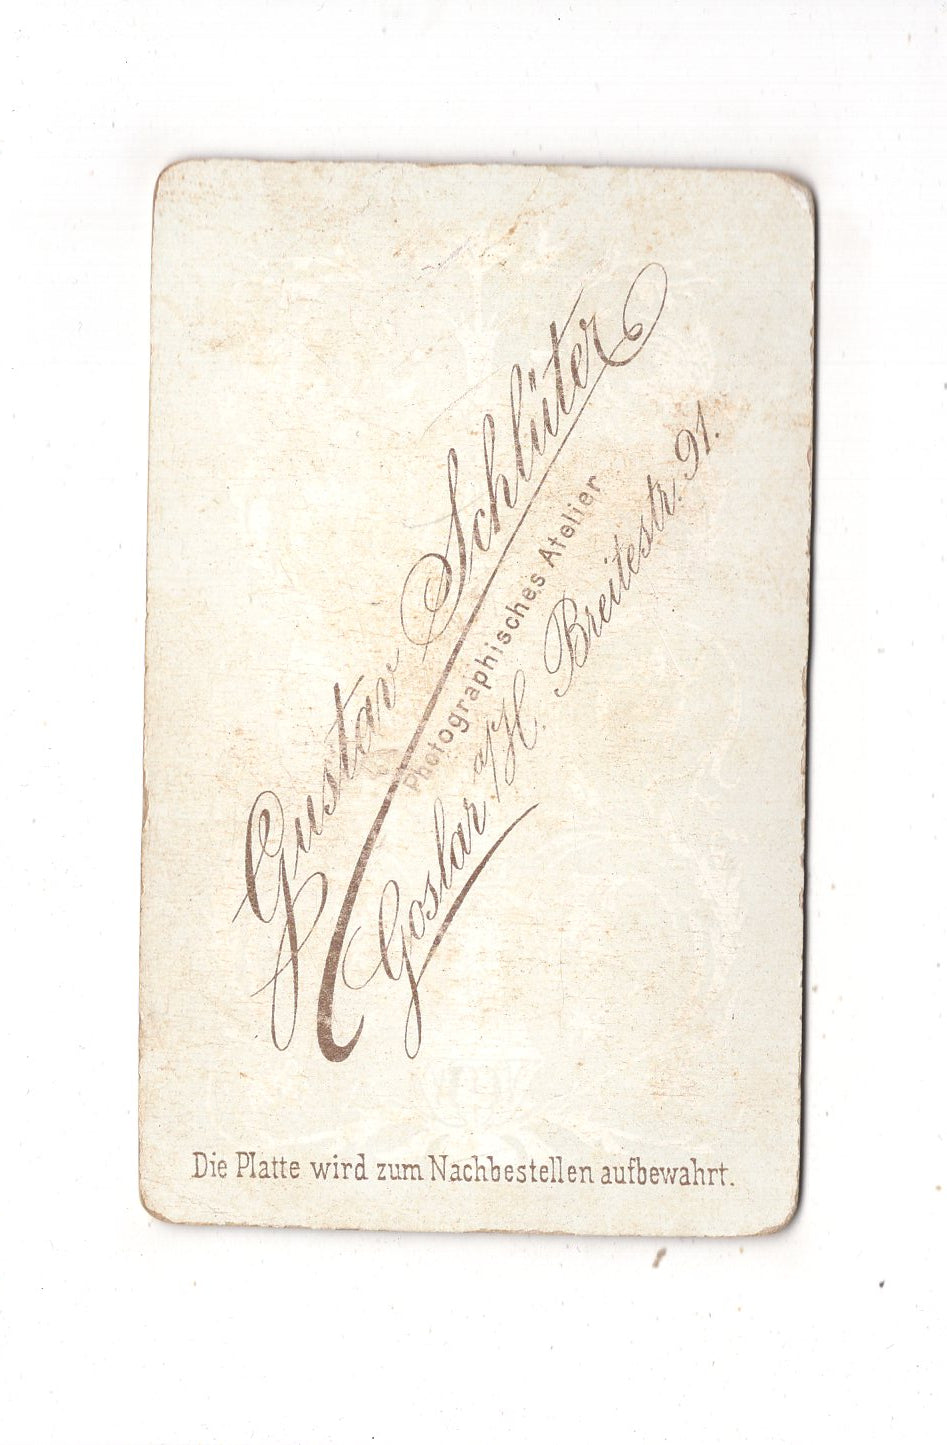 Gustav Schlüter
Photographisches Atelier
Goslar a/H. Breitestr. 91.
Die Platte wird zum Nachbestellen aufbewahrt.